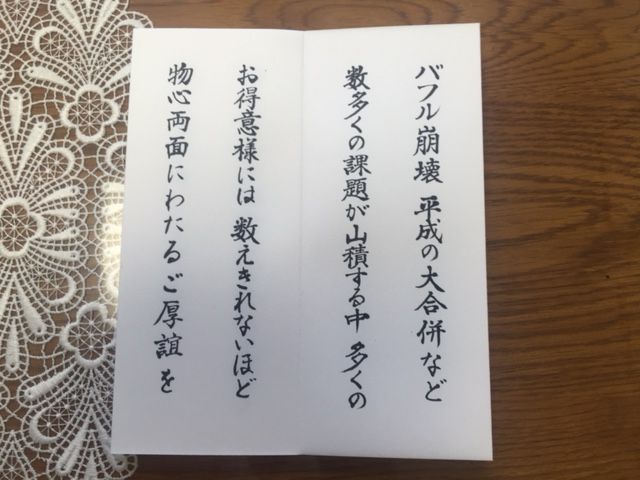 バフル崩壊 平成の大合併など
数多くの課題が山積する中 多くの
お得意様には 数えきれないほど
物心両面にわたるご厚誼を